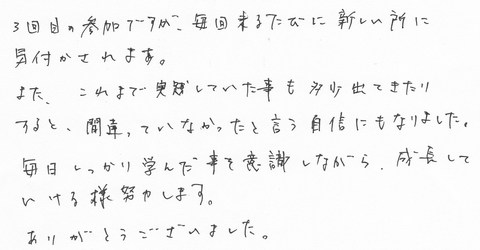 3回目の参加ですが、毎回来るたびに新しい所に
気付かされます。
また、これまで実践していた事も多少出てきたり
すると、間違っていなかったと言う自信にもなりました。
毎日しっかり学んだ事を意識しながら、成長して
いける様努力します。
ありがとうございました。